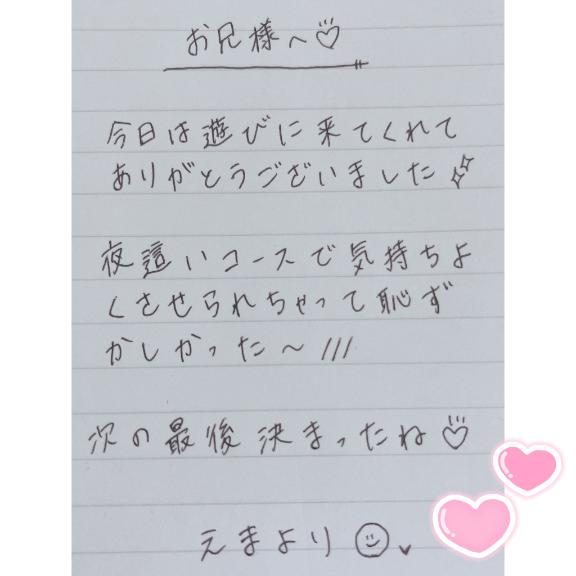 お兄様へ♡
今日は遊びに来てくれて
ありがとうございました
夜這いコースで気持ちよ
くさせられちゃって恥ず
かしかった〜///
次の最後決まったね♡
えまより